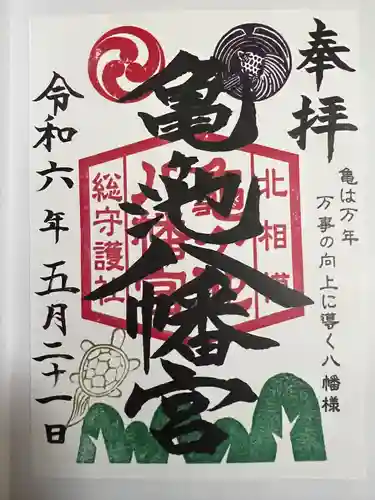 奉拝
亀は万年
万事の向上に導く八幡様
北相模
亀ヶ池八幡宮
亀ヶ池八幡宮
総守護社
令和六年五月二十一日